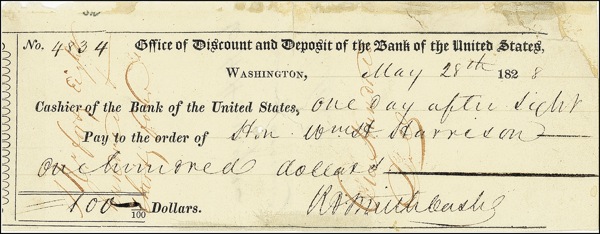 No. 4834 Office of Discount and Deposit of the Bank of the United States,
Washington, May 28th 1828
Cashier of the Bank of the United States, one day after sight
Pay to the order of Hon Wm H Harrison
one hundred dollars
100 /100 Dollars. Rd Smith Cashr